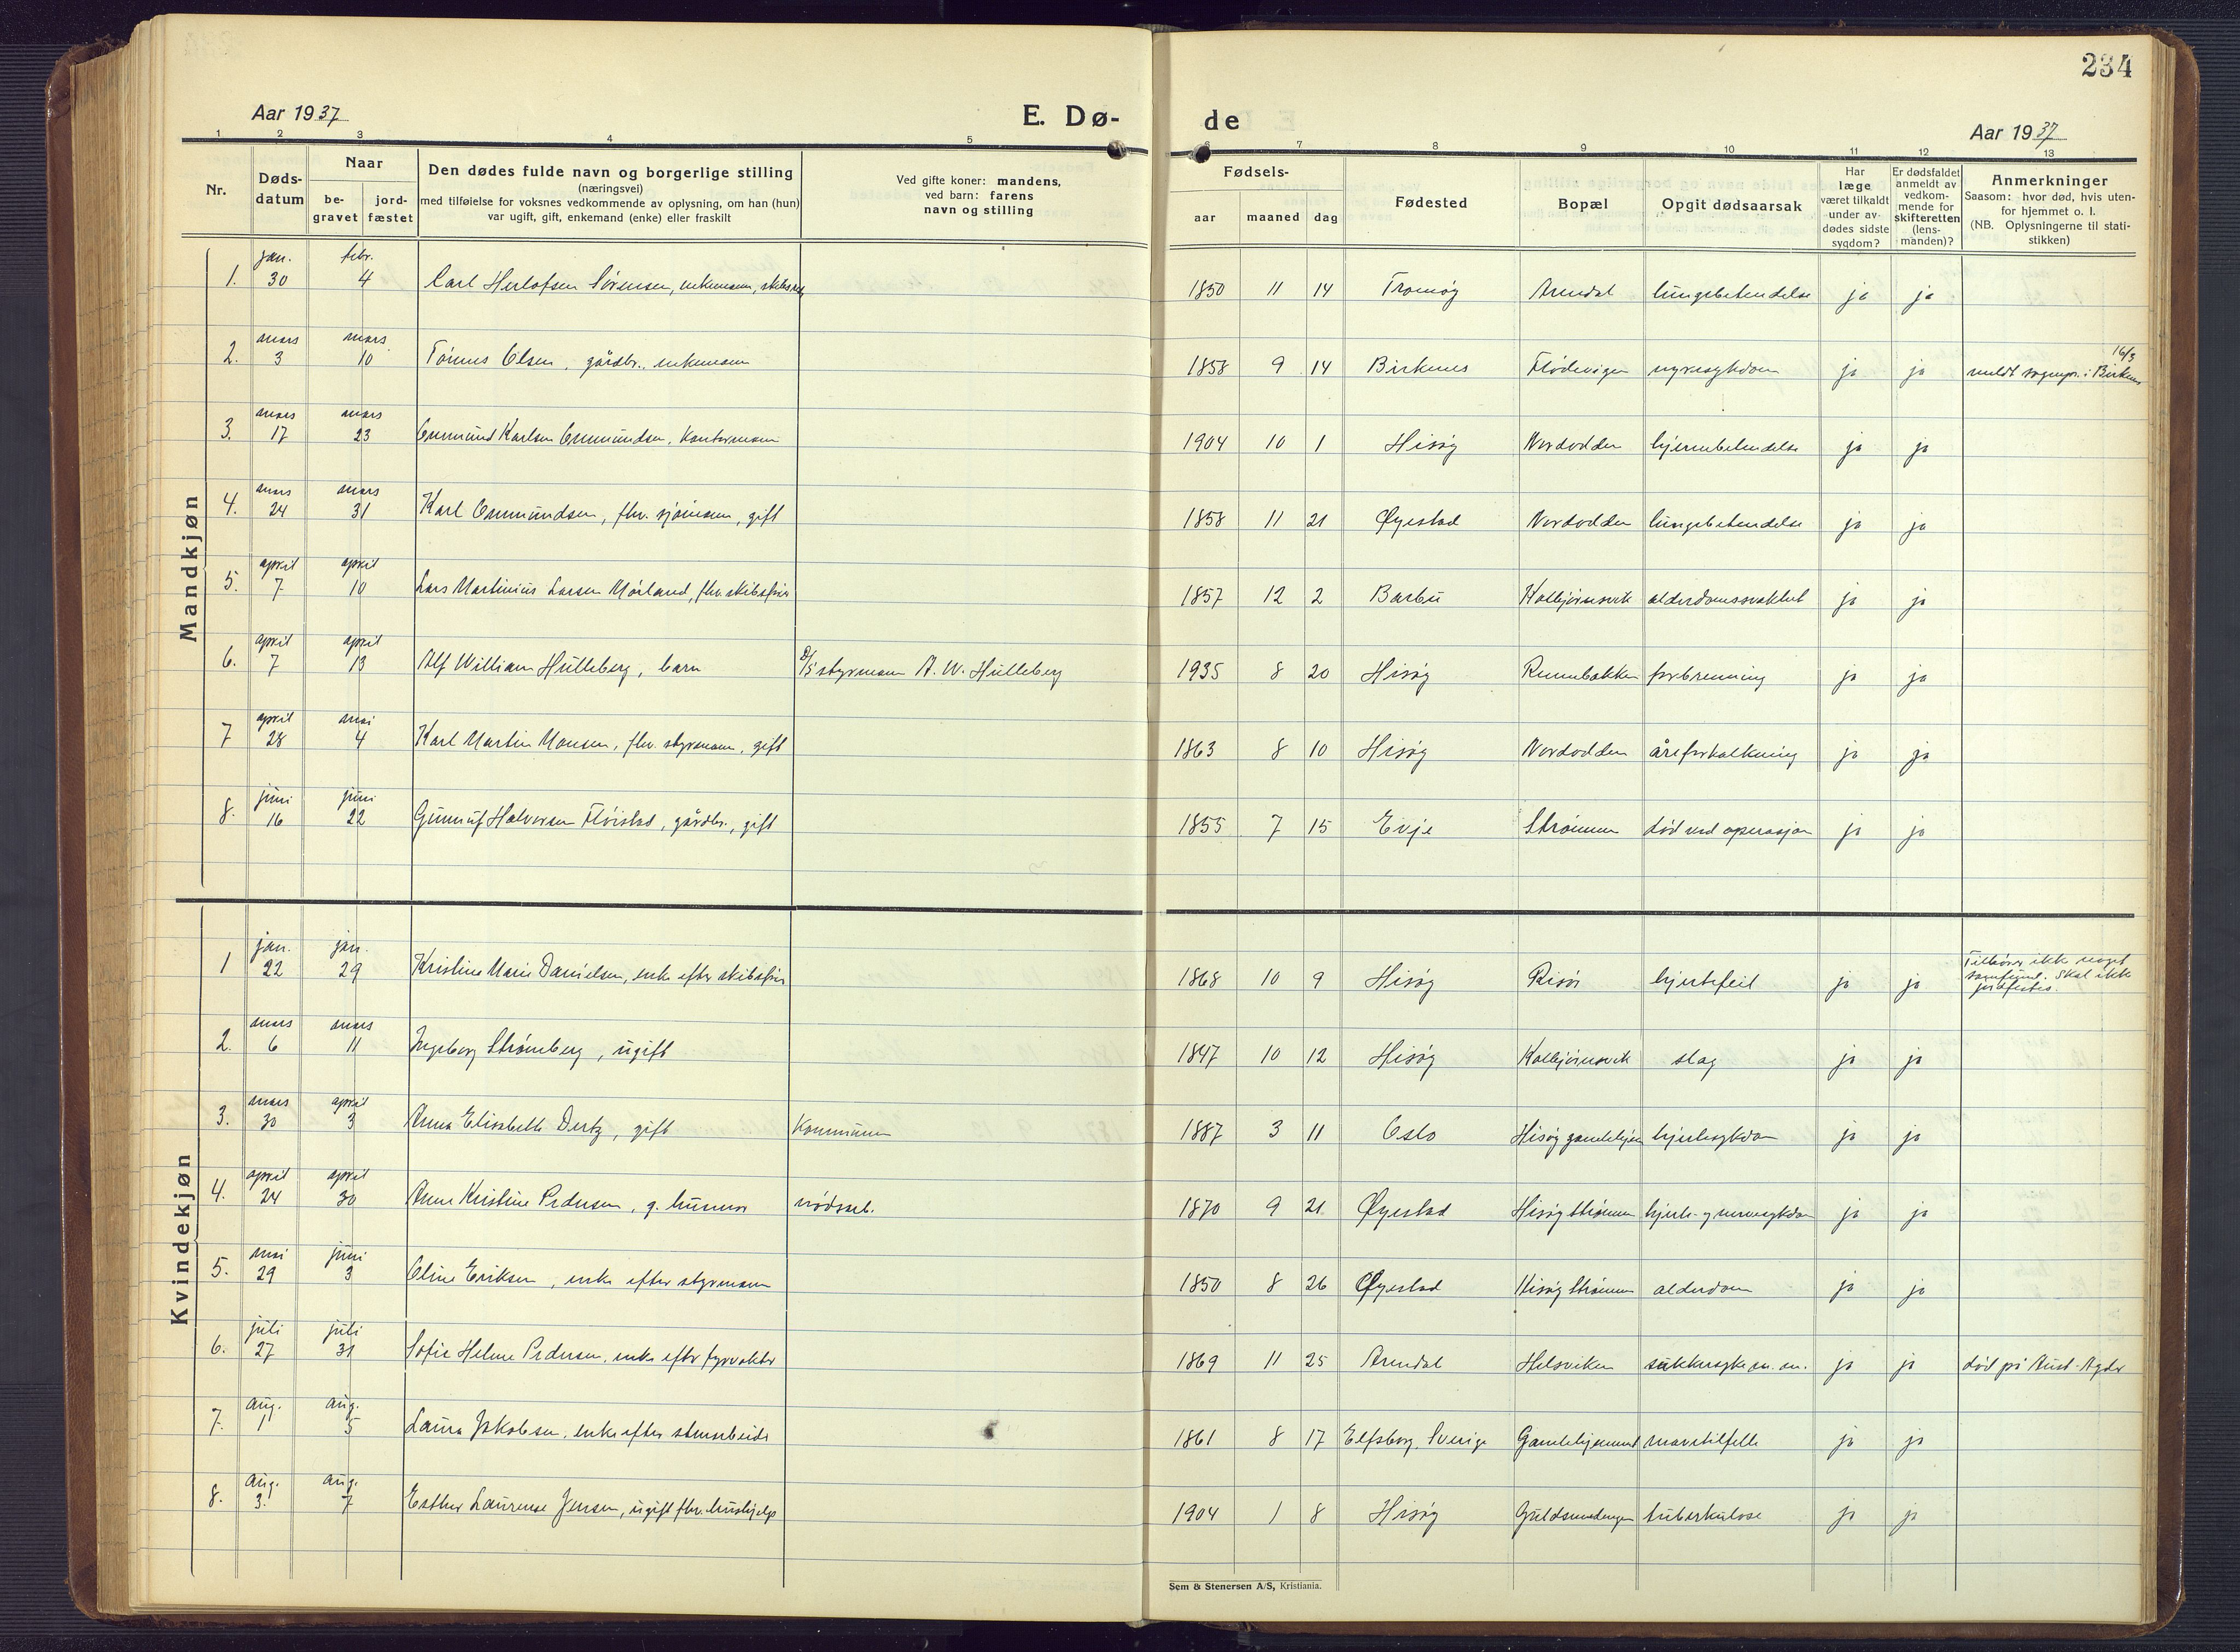 234
Aar 1937
E. Dø-
de
Aar 1937
1 2 3 4 5 6 7 8 9 10 11 12 13
Nr.
Døds-
datum
Naar
be-
gravet
jord-
fæstet
Den dødes fulde navn og borgerlige stilling
(næringsvei)
med tilføielse for voksnes vedkommende av oplysning, om han (hun)
var ugift, gift, enkemand (enke) eller fraskilt
Ved gifte koner: mandens,
ved barn: farens
navn og stilling
Fødsels-
aar maaned dag
Fødested
Bopæl
Opgit dødsaarsak
Har
læge
været tilkaldt
under av-
dødes sidste
sygdom?
Er dødsfaldet
anmeldt av
vedkom-
mende for
skifteretten
(lens-
manden)?
Anmerkninger
Saasom: hvor død, hvis uten-
for hjemmet o. l.
(NB. Oplysningerne til stati-
stikken)
Mandkjøn
jan. febr.
1. 30 4 Carl Herlofsen Sørensen, enkemann, 1850 11 14 Tromøy Arendal lungebetendelse ja ja
mars mars 16/3
2. 3 10 Tønnes Olsen, gårdbr., enkemann 1858 9 14 Birkenes Flødevigen nyresykdom ja ja meldt sognepr. i Birkenes
mars mars
3. 17 23 Gunmund Karlsen Gunmundsen, Kontormann 1904 10 1 Hisøy Nordodden hjernebetendelse ja ja
mars mars
4. 24 31 Karl Gunmundsen, fhv. sjømann, gift 1858 11 21 Øyestad Nordodden lungebetendelse ja ja
april april
5. 7 10 Lars Martinius Larsen Mørland, fhv. skibsfører 1857 12 2 Barbu Kolbjørnsvik alderdomssvakhet ja ja
april april
6. 7 13 Alf William Hulleberg, barn D/S styrmann A. W. Hulleberg 1935 8 20 Hisøy Rennebakken forbrenning ja ja
april mai
7 28 4 Karl Martin Monsen, fhv. styrmann, gift 1863 8 10 Hisøy Nordodden åreforkalkning ja ja
juni juni
8. 16 22 Gunnuf Halvorsen Fløistad, gårdbr., gift 1855 7 15 Evje Strømmen død ved operasjon ja ja
Kvindekjøn
jan. jan.
1 22 29 Kristine Marie Danielsen, enke efter skibsfører 1868 10 9 Hisøy Risør hjertefeil ja ja Tilhører ikke noget
samfund. Skal ikke
jordfestes.
mars mars
2. 6 11 Ingeborg Strømberg, ugift 1847 10 12 Hisøy Kolbjørnsvik slag ja ja
mars april
3. 30 3 Anna Elisabeth Dertz, gift Kommunen 1887 3 11 Oslo Hisøy gamlehjem hjertesykdom ja ja
april april
4. 24 30 Anne Kristine Pedersen, g. husmor nødsarb. 1870 9 21 Øyestad Hisøy Strømmen hjerte- og nervesykdom ja ja
mai juni
5. 29 3 Oline Eriksen, enke efter styrmann 1850 8 26 Øyestad Hisøy Strømmen alderdom ja ja
juli juli
6. 27 31 Sofie Helene Pedersen, enke efter fyrvokter 1869 11 25 Arendal Helsviken sukkersyke m. m. ja ja død på Aust-Agder
aug. aug.
7. 1 5 Laura Jakobsen, enke efter stenarbeider 1861 8 17 Elfsborg, Sverige Gamlehjemmet mavetilfelle ja ja
aug. aug.
8. 3. 7 Esther Laurense Jensen, ugift fhv. hushjelp 1904 1 8 Hisøy Guldsmedengen tuberkulose ja ja
Sem & Stenersen A/S, Kristiania.